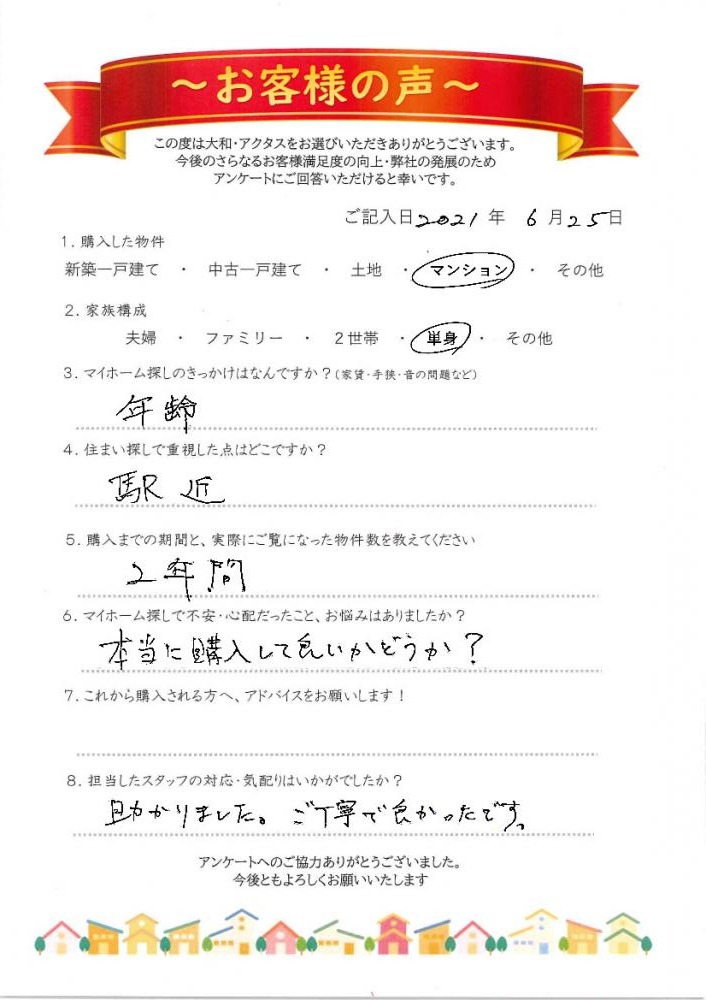 ～お客様の声～
この度は大和・アクタスをお選びいただきありがとうございます。
今後のさらなるお客様満足度の向上・弊社の発展のため
アンケートにご回答いただけると幸いです。
ご記入日2021年 6月25日
1. 購入した物件
新築一戸建て ・ 中古一戸建て ・ 土地 ・ マンション ・ その他
2. 家族構成
夫婦 ・ ファミリー ・ 2世帯 ・ 単身 ・ その他
3. マイホーム探しのきっかけはなんですか？(家賃・手狭・音の問題など)
年齢
4. 住まい探しで重視した点はどこですか？
駅近
5. 購入までの期間と、実際にご覧になった物件数を教えてください
2年間
6. マイホーム探しで不安・心配だったこと、お悩みはありましたか？
本当に購入して良いかどうか？
7. これから購入される方へ、アドバイスをお願いします！
8. 担当したスタッフの対応・気配りはいかがでしたか？
助かりました。ご丁寧で良かったです。
アンケートへのご協力ありがとうございました。
今後ともよろしくお願いいたします